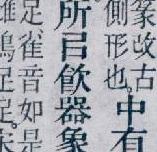 篆改古
側形也。
中有
所㠯飮器象
足雀音如是
鳴足足。